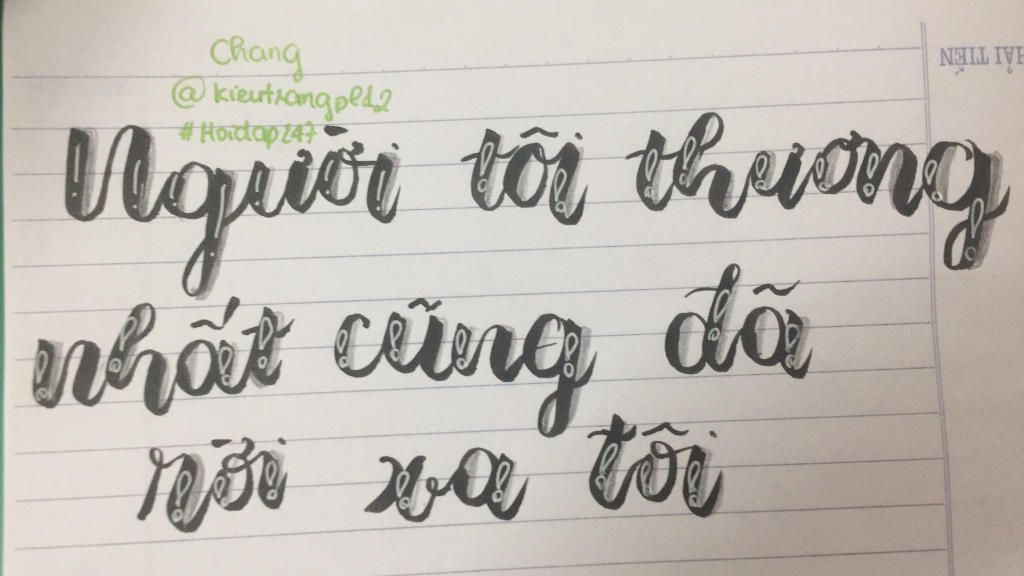 Chang
@kieutrangpl12
#Hoidap247
Người tôi thương
nhất cũng đã
rời xa tôi
HẢI TIẾN